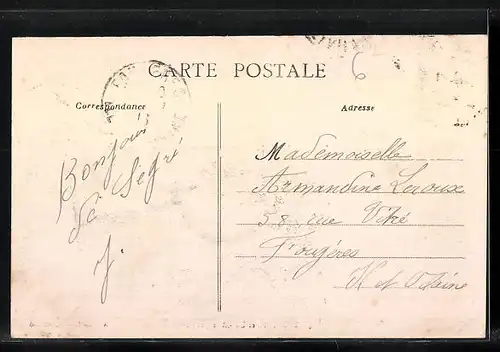 CARTE POSTALE
Correspondance
Adresse
Bonjour
de Segré
J.
Mademoiselle
Armandine Leroux
58 rue Vitré
Fougères
Ile et Vilaine
6